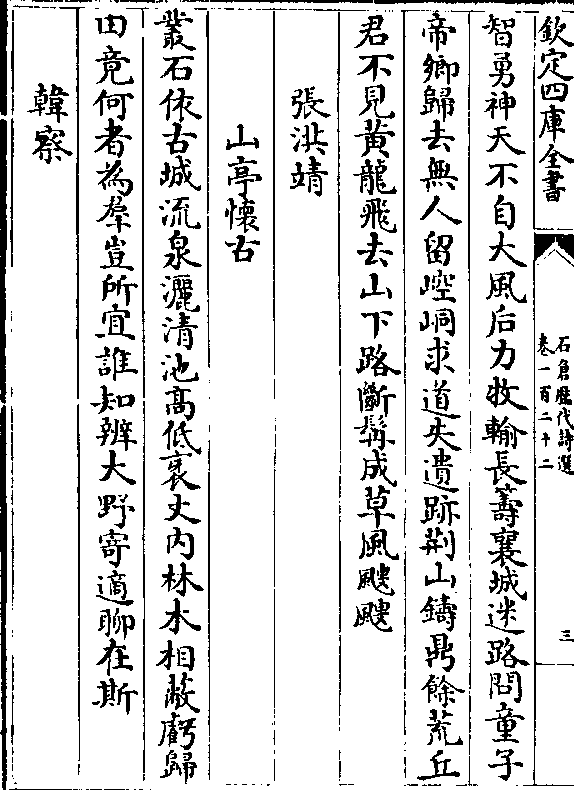 欽定四庫全書
石倉歷代詩選
卷一百二十二
三
智勇神天不自大風后力牧輸長籌襄城迷路問童子
帝鄉歸去無人留崆峒求道失遺跡荆山鑄鼎餘荒丘
君不見黄龍飛去山下路斷髯成草風颼颼
張洪靖
山亭懷古
叢石依古城流泉灑清池高低袤丈内林木相蔽虧歸
田竟何者為羣豈所宜誰知辨大野寄適聊在斯
韓察